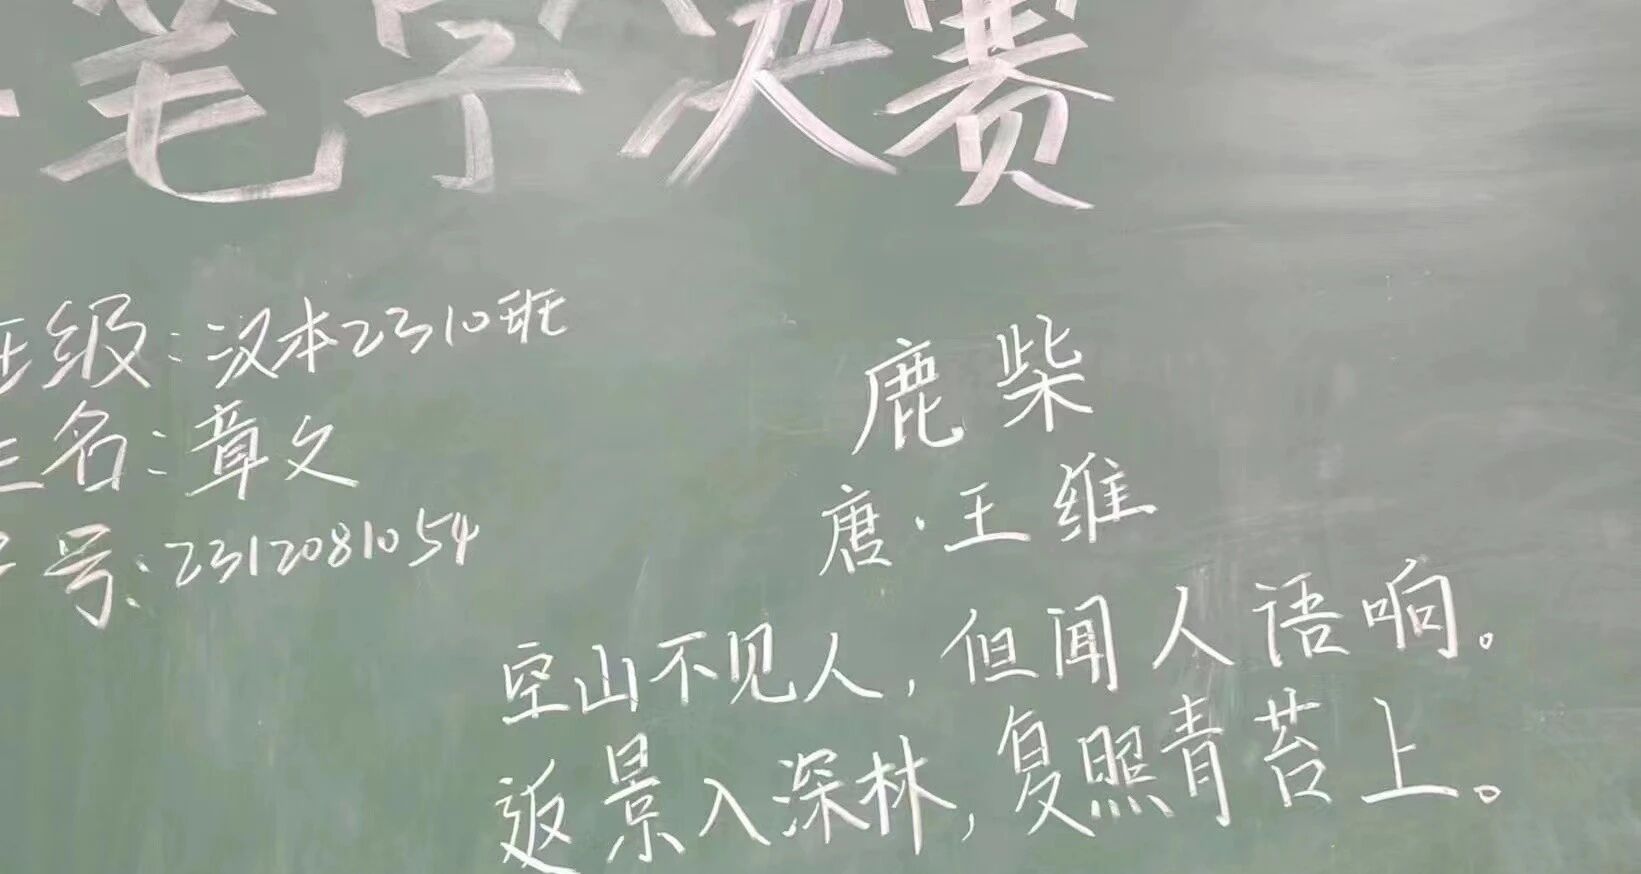 笔字决赛
班级：汉本2310班
姓名：章文
学号：2312081054
鹿柴
唐·王维
空山不见人，但闻人语响。
返景入深林，复照青苔上。